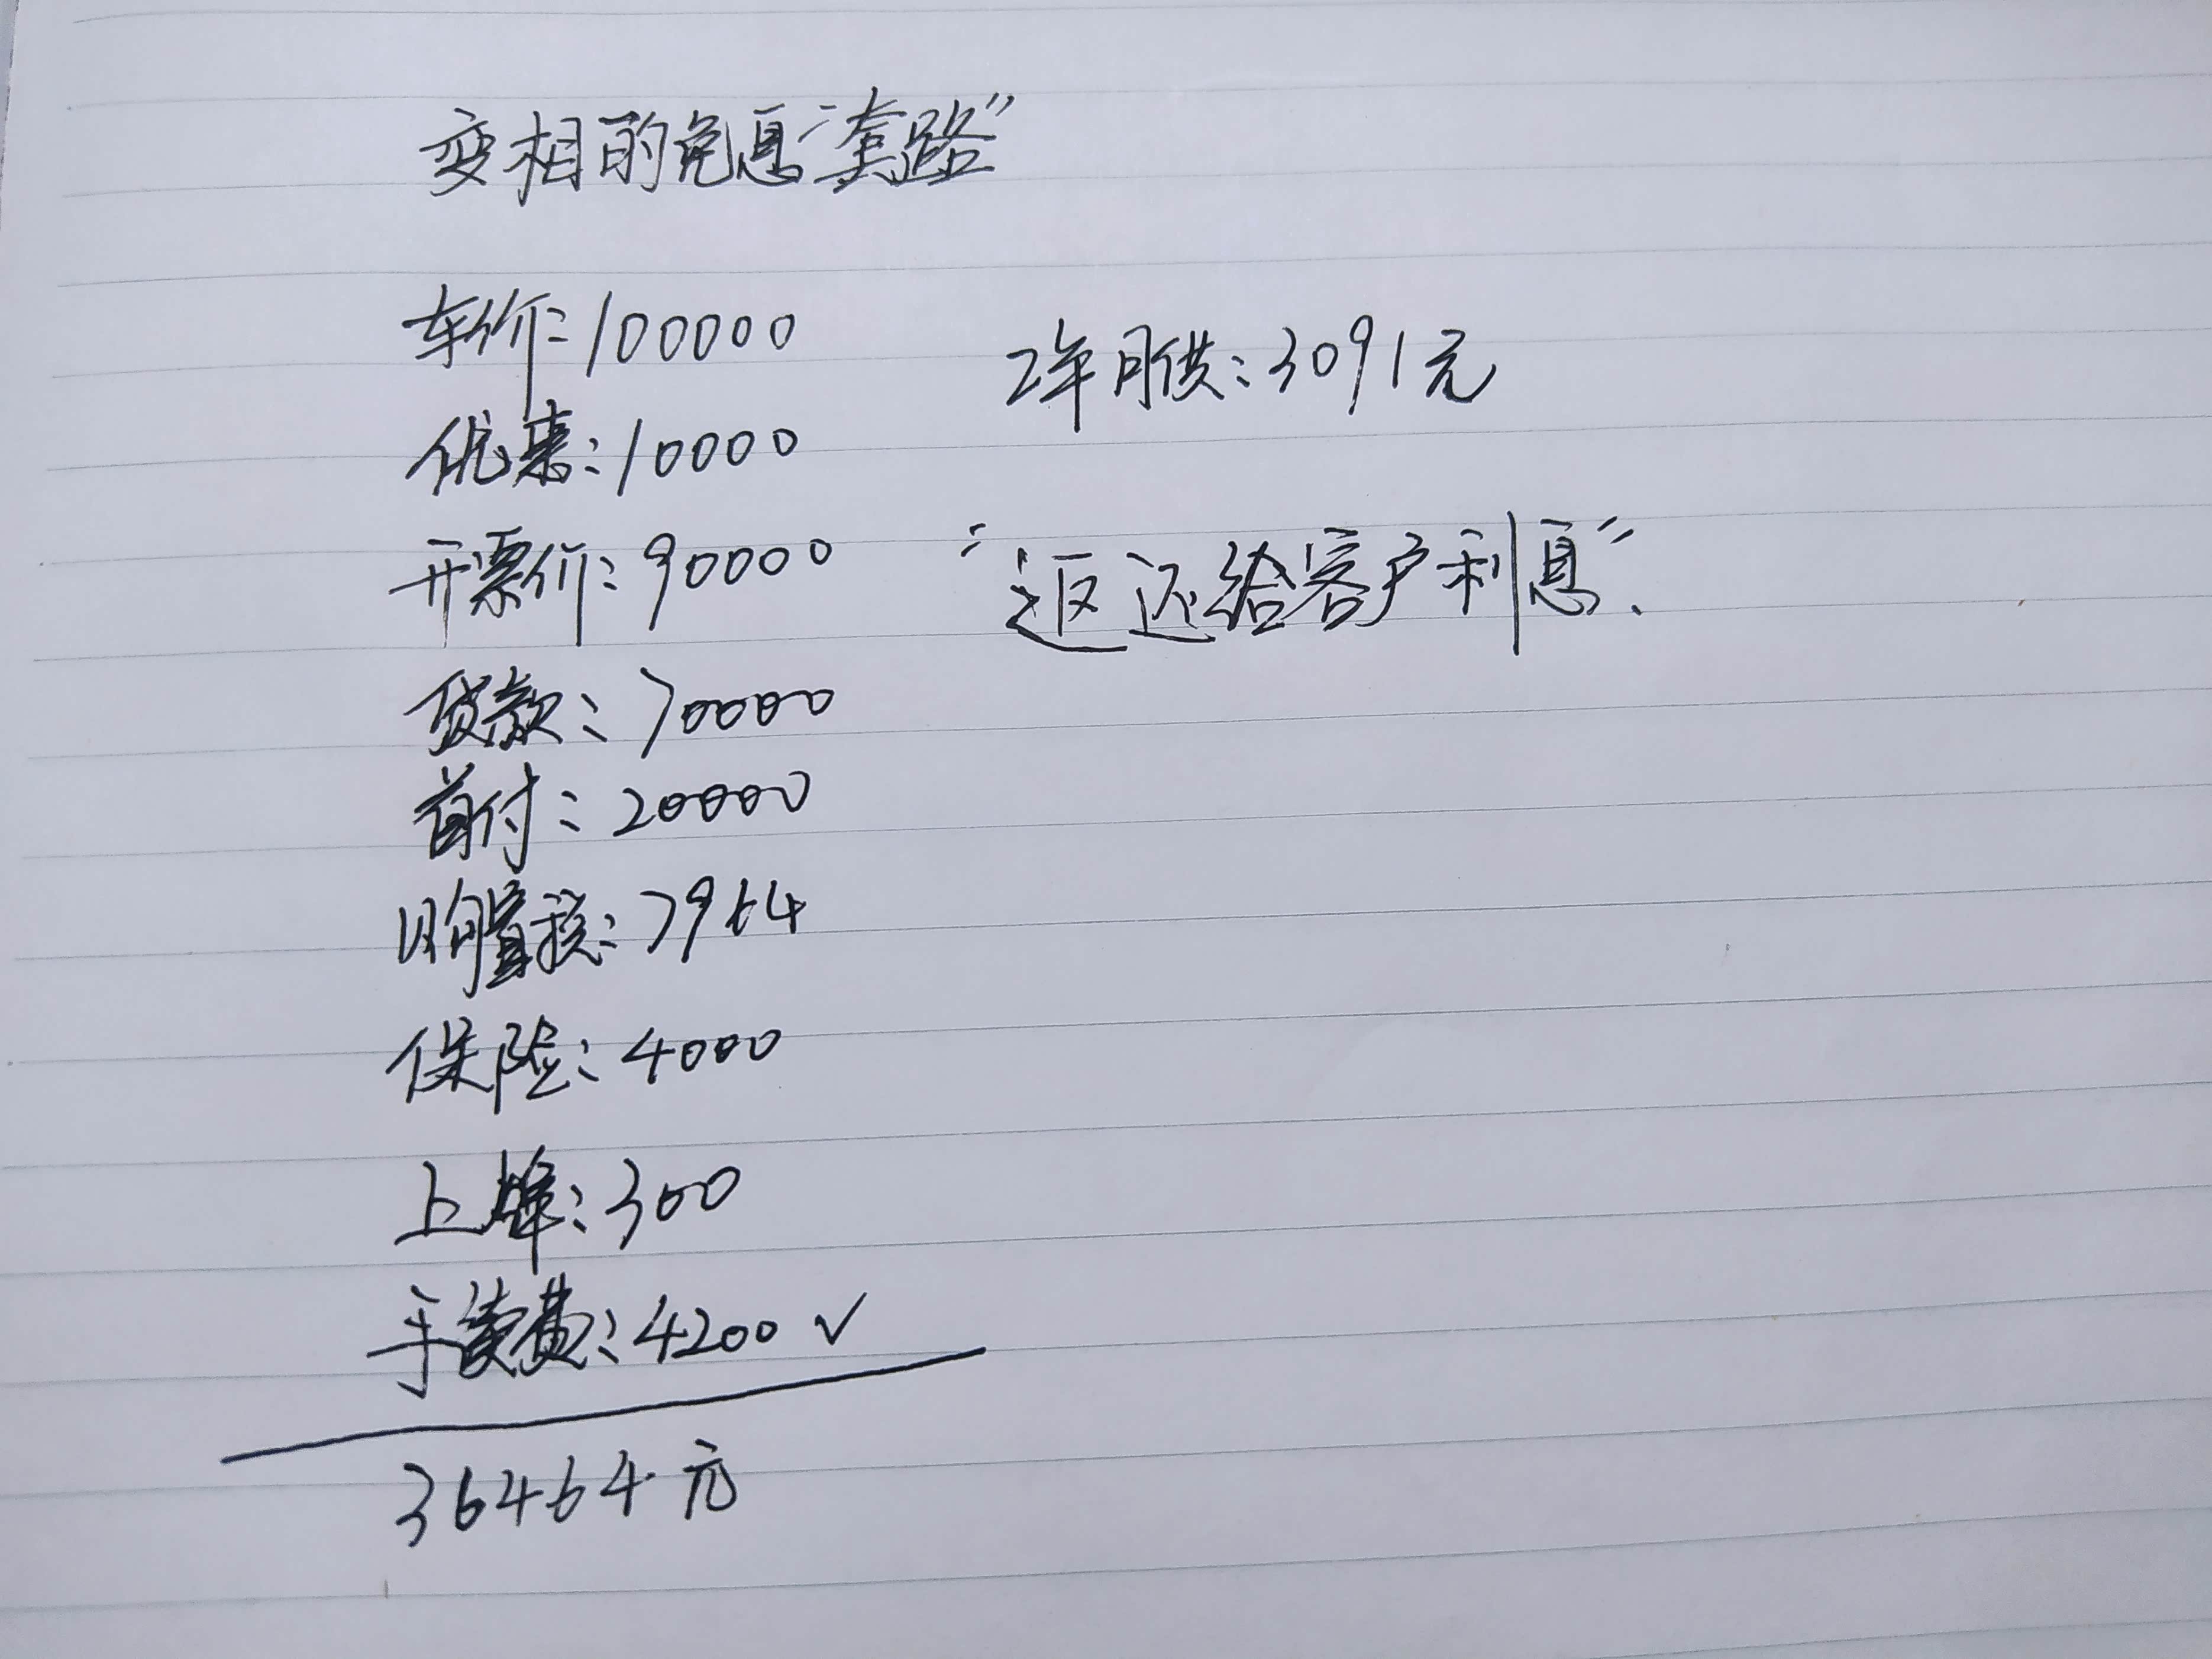 变相的免息“套路”
车价：100000
2年月供：3091元
优惠：10000
开票价：90000
“返还给客户利息”、
贷款：70000
首付：20000
购置税：7964
保险：4000
上牌：300
手续费：4200 ✓
36464元